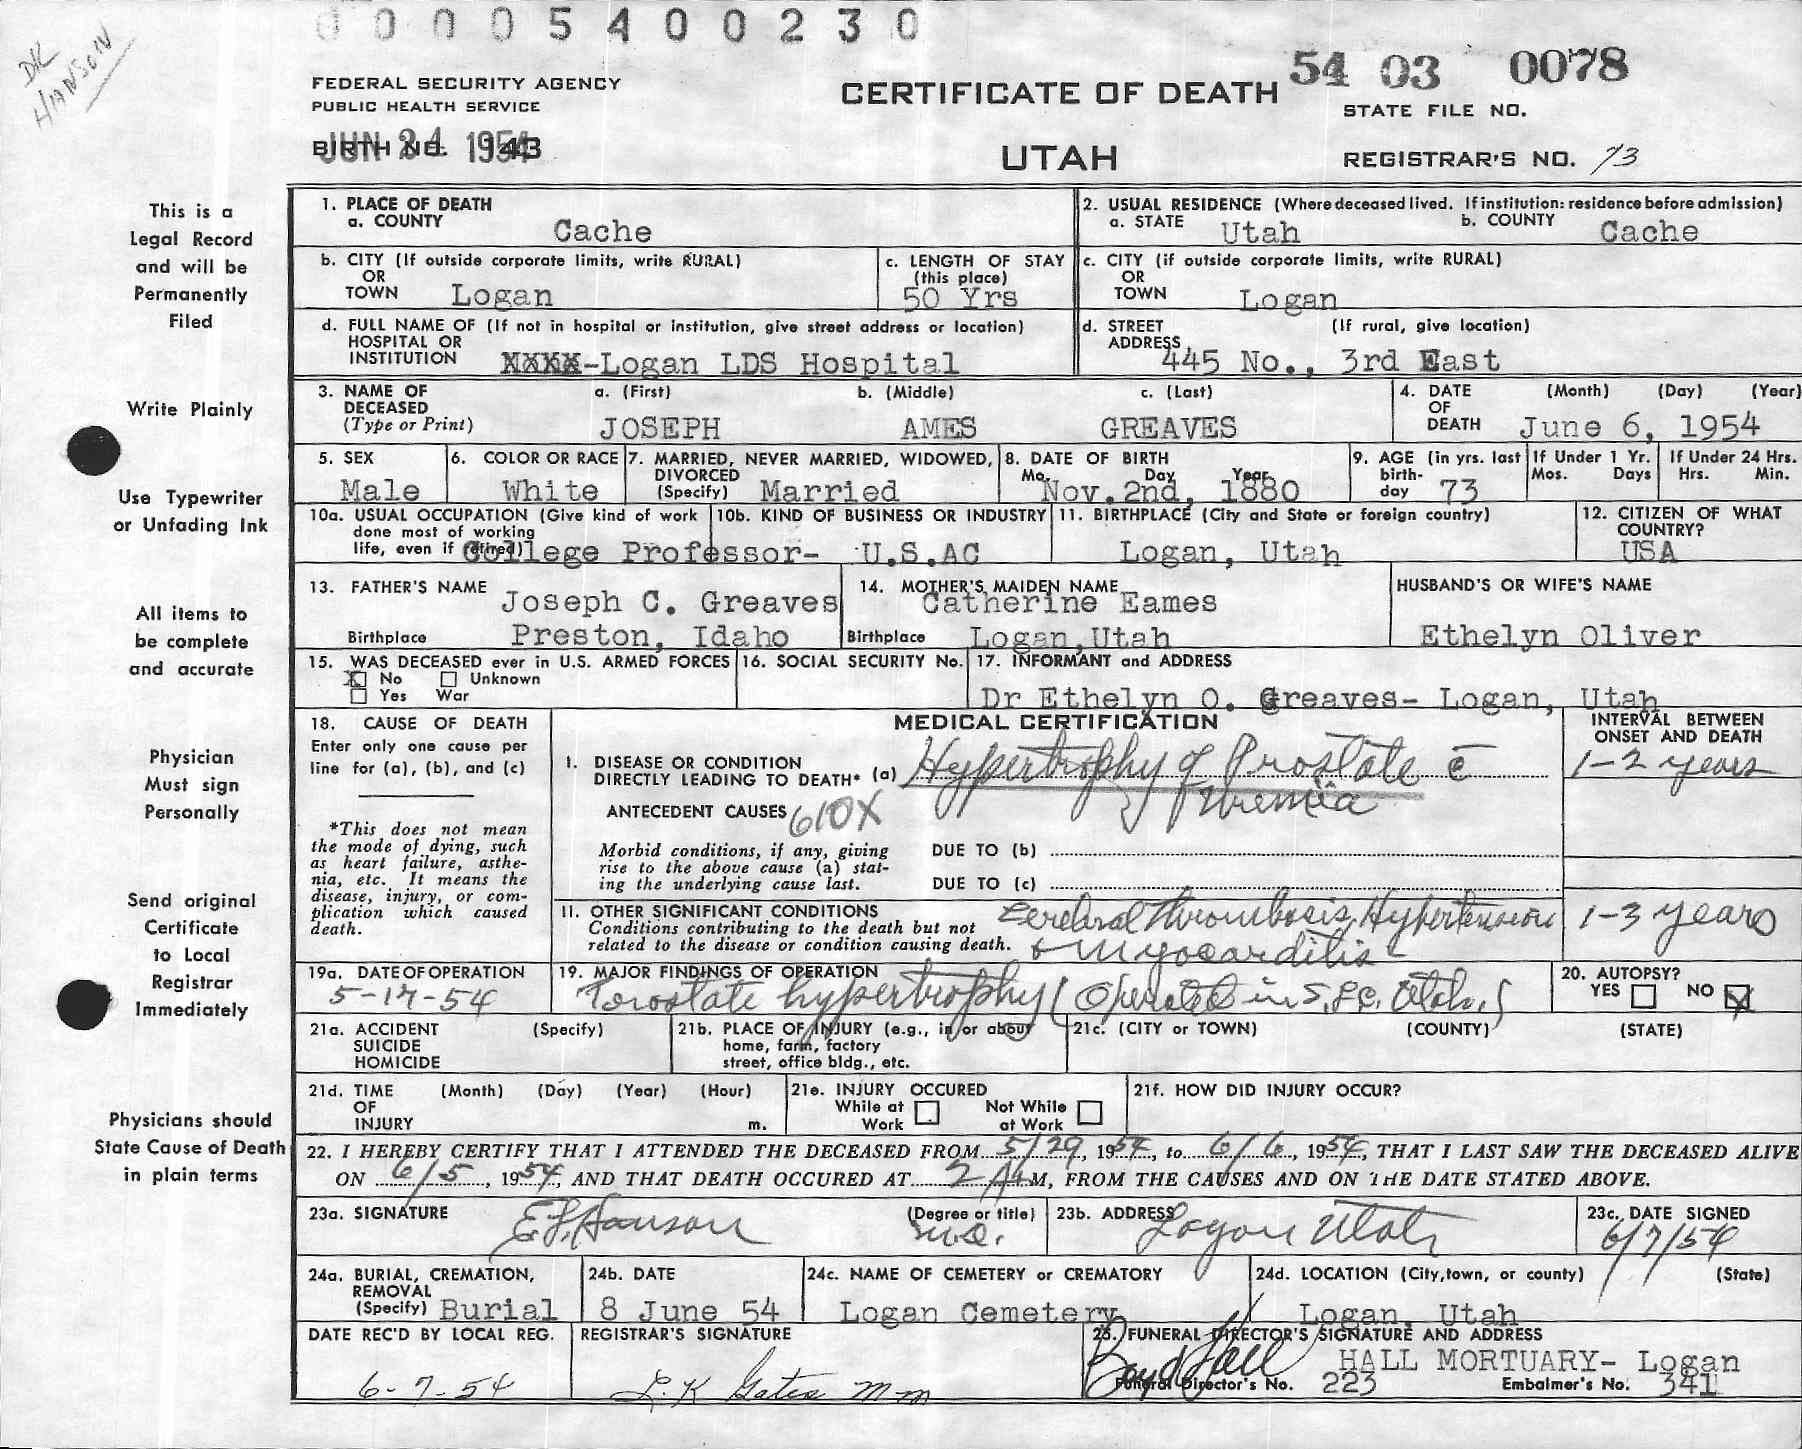 0 0 0 5 4 0 0 2 3 0
DR
HANSON
FEDERAL SECURITY AGENCY
PUBLIC HEALTH SERVICE
BIRTH NO. 143
JUN 24 1954
CERTIFICATE OF DEATH
UTAH
54 03 0078
STATE FILE NO.
REGISTRAR'S NO. 73
This is a
Legal Record
and will be
Permanently
Filed
Write Plainly
Use Typewriter
or Unfading Ink
All items to
be complete
and accurate
Physician
Must sign
Personally
Send original
Certificate
to Local
Registrar
Immediately
Physicians should
State Cause of Death
in plain terms
1. PLACE OF DEATH
a. COUNTY Cache
2. USUAL RESIDENCE (Where deceased lived. If institution: residence before admission)
a. STATE Utah b. COUNTY Cache
b. CITY (If outside corporate limits, write RURAL)
OR
TOWN Logan
c. LENGTH OF STAY
(this place)
50 Yrs
c. CITY (if outside corporate limits, write RURAL)
OR
TOWN Logan
d. FULL NAME OF (If not in hospital or institution, give street address or location)
HOSPITAL OR
INSTITUTION -Logan LDS Hospital
d. STREET (If rural, give location)
ADDRESS 445 No., 3rd East
3. NAME OF DECEASED
(Type or Print)
a. (First) b. (Middle) c. (Last)
JOSEPH AMES GREAVES
4. DATE OF DEATH (Month) (Day) (Year)
June 6, 1954
5. SEX
Male
6. COLOR OR RACE
White
7. MARRIED, NEVER MARRIED, WIDOWED,
DIVORCED
(Specify) Married
8. DATE OF BIRTH
Mo. Day Year
Nov. 2nd, 1880
9. AGE (in yrs. last
birth-
day 73
If Under 1 Yr.
Mos. Days
If Under 24 Hrs.
Hrs. Min.
10a. USUAL OCCUPATION (Give kind of work
done most of working
life, even if retired) College Professor-
10b. KIND OF BUSINESS OR INDUSTRY
U.S.AC
11. BIRTHPLACE (City and State or foreign country)
Logan, Utah
12. CITIZEN OF WHAT
COUNTRY?
USA
13. FATHER'S NAME Joseph C. Greaves
Birthplace Preston, Idaho
14. MOTHER'S MAIDEN NAME
Catherine Eames
Birthplace Logan,Utah
HUSBAND'S OR WIFE'S NAME
Ethelyn Oliver
15. WAS DECEASED ever in U.S. ARMED FORCES
X No Unknown
Yes War
16. SOCIAL SECURITY No.
17. INFORMANT and ADDRESS
Dr Ethelyn O. Greaves- Logan, Utah
18. CAUSE OF DEATH
Enter only one cause per
line for (a), (b), and (c)
*This does not mean
the mode of dying, such
as heart failure, asthe-
nia, etc. It means the
disease, injury, or com-
plication which caused
death.
MEDICAL CERTIFICATION
INTERVAL BETWEEN
ONSET AND DEATH
I. DISEASE OR CONDITION
DIRECTLY LEADING TO DEATH* (a) Hypertrophy of Prostate c̄
Uremia
1-2 years
ANTECEDENT CAUSES 610X
Morbid conditions, if any, giving
rise to the above cause (a) stat-
ing the underlying cause last.
DUE TO (b)
DUE TO (c)
II. OTHER SIGNIFICANT CONDITIONS
Conditions contributing to the death but not
related to the disease or condition causing death.
Cerebral Thrombosis, Hypertension
& Myocarditis
1-3 years
19a. DATE OF OPERATION
5-17-54
19. MAJOR FINDINGS OF OPERATION
Prostate hypertrophy (Operated in S.L.C. Utah.)
20. AUTOPSY?
YES NO X
21a. ACCIDENT (Specify)
SUICIDE
HOMICIDE
21b. PLACE OF INJURY (e.g., in or about
home, farm, factory
street, office bldg., etc.
21c. (CITY or TOWN) (COUNTY) (STATE)
21d. TIME (Month) (Day) (Year) (Hour)
OF
INJURY m.
21e. INJURY OCCURED
While at Work Not While at Work
21f. HOW DID INJURY OCCUR?
22. I HEREBY CERTIFY THAT I ATTENDED THE DECEASED FROM 5/29, 1954, to 6/6, 1954, THAT I LAST SAW THE DECEASED ALIVE
ON 6/5, 1954, AND THAT DEATH OCCURED AT 2 A M, FROM THE CAUSES AND ON THE DATE STATED ABOVE.
23a. SIGNATURE (Degree or title)
E.L. Hanson M.D.
23b. ADDRESS
Logan Utah
23c. DATE SIGNED
6/7/54
24a. BURIAL, CREMATION,
REMOVAL
(Specify) Burial
24b. DATE
8 June 54
24c. NAME OF CEMETERY or CREMATORY
Logan Cemetery
24d. LOCATION (City, town, or county) (State)
Logan, Utah
DATE REC'D BY LOCAL REG.
6-7-54
REGISTRAR'S SIGNATURE
L.K Gates mm
25. FUNERAL DIRECTOR'S SIGNATURE AND ADDRESS
Boyd Hall HALL MORTUARY- Logan
Funeral Director's No. 223 Embalmer's No. 341